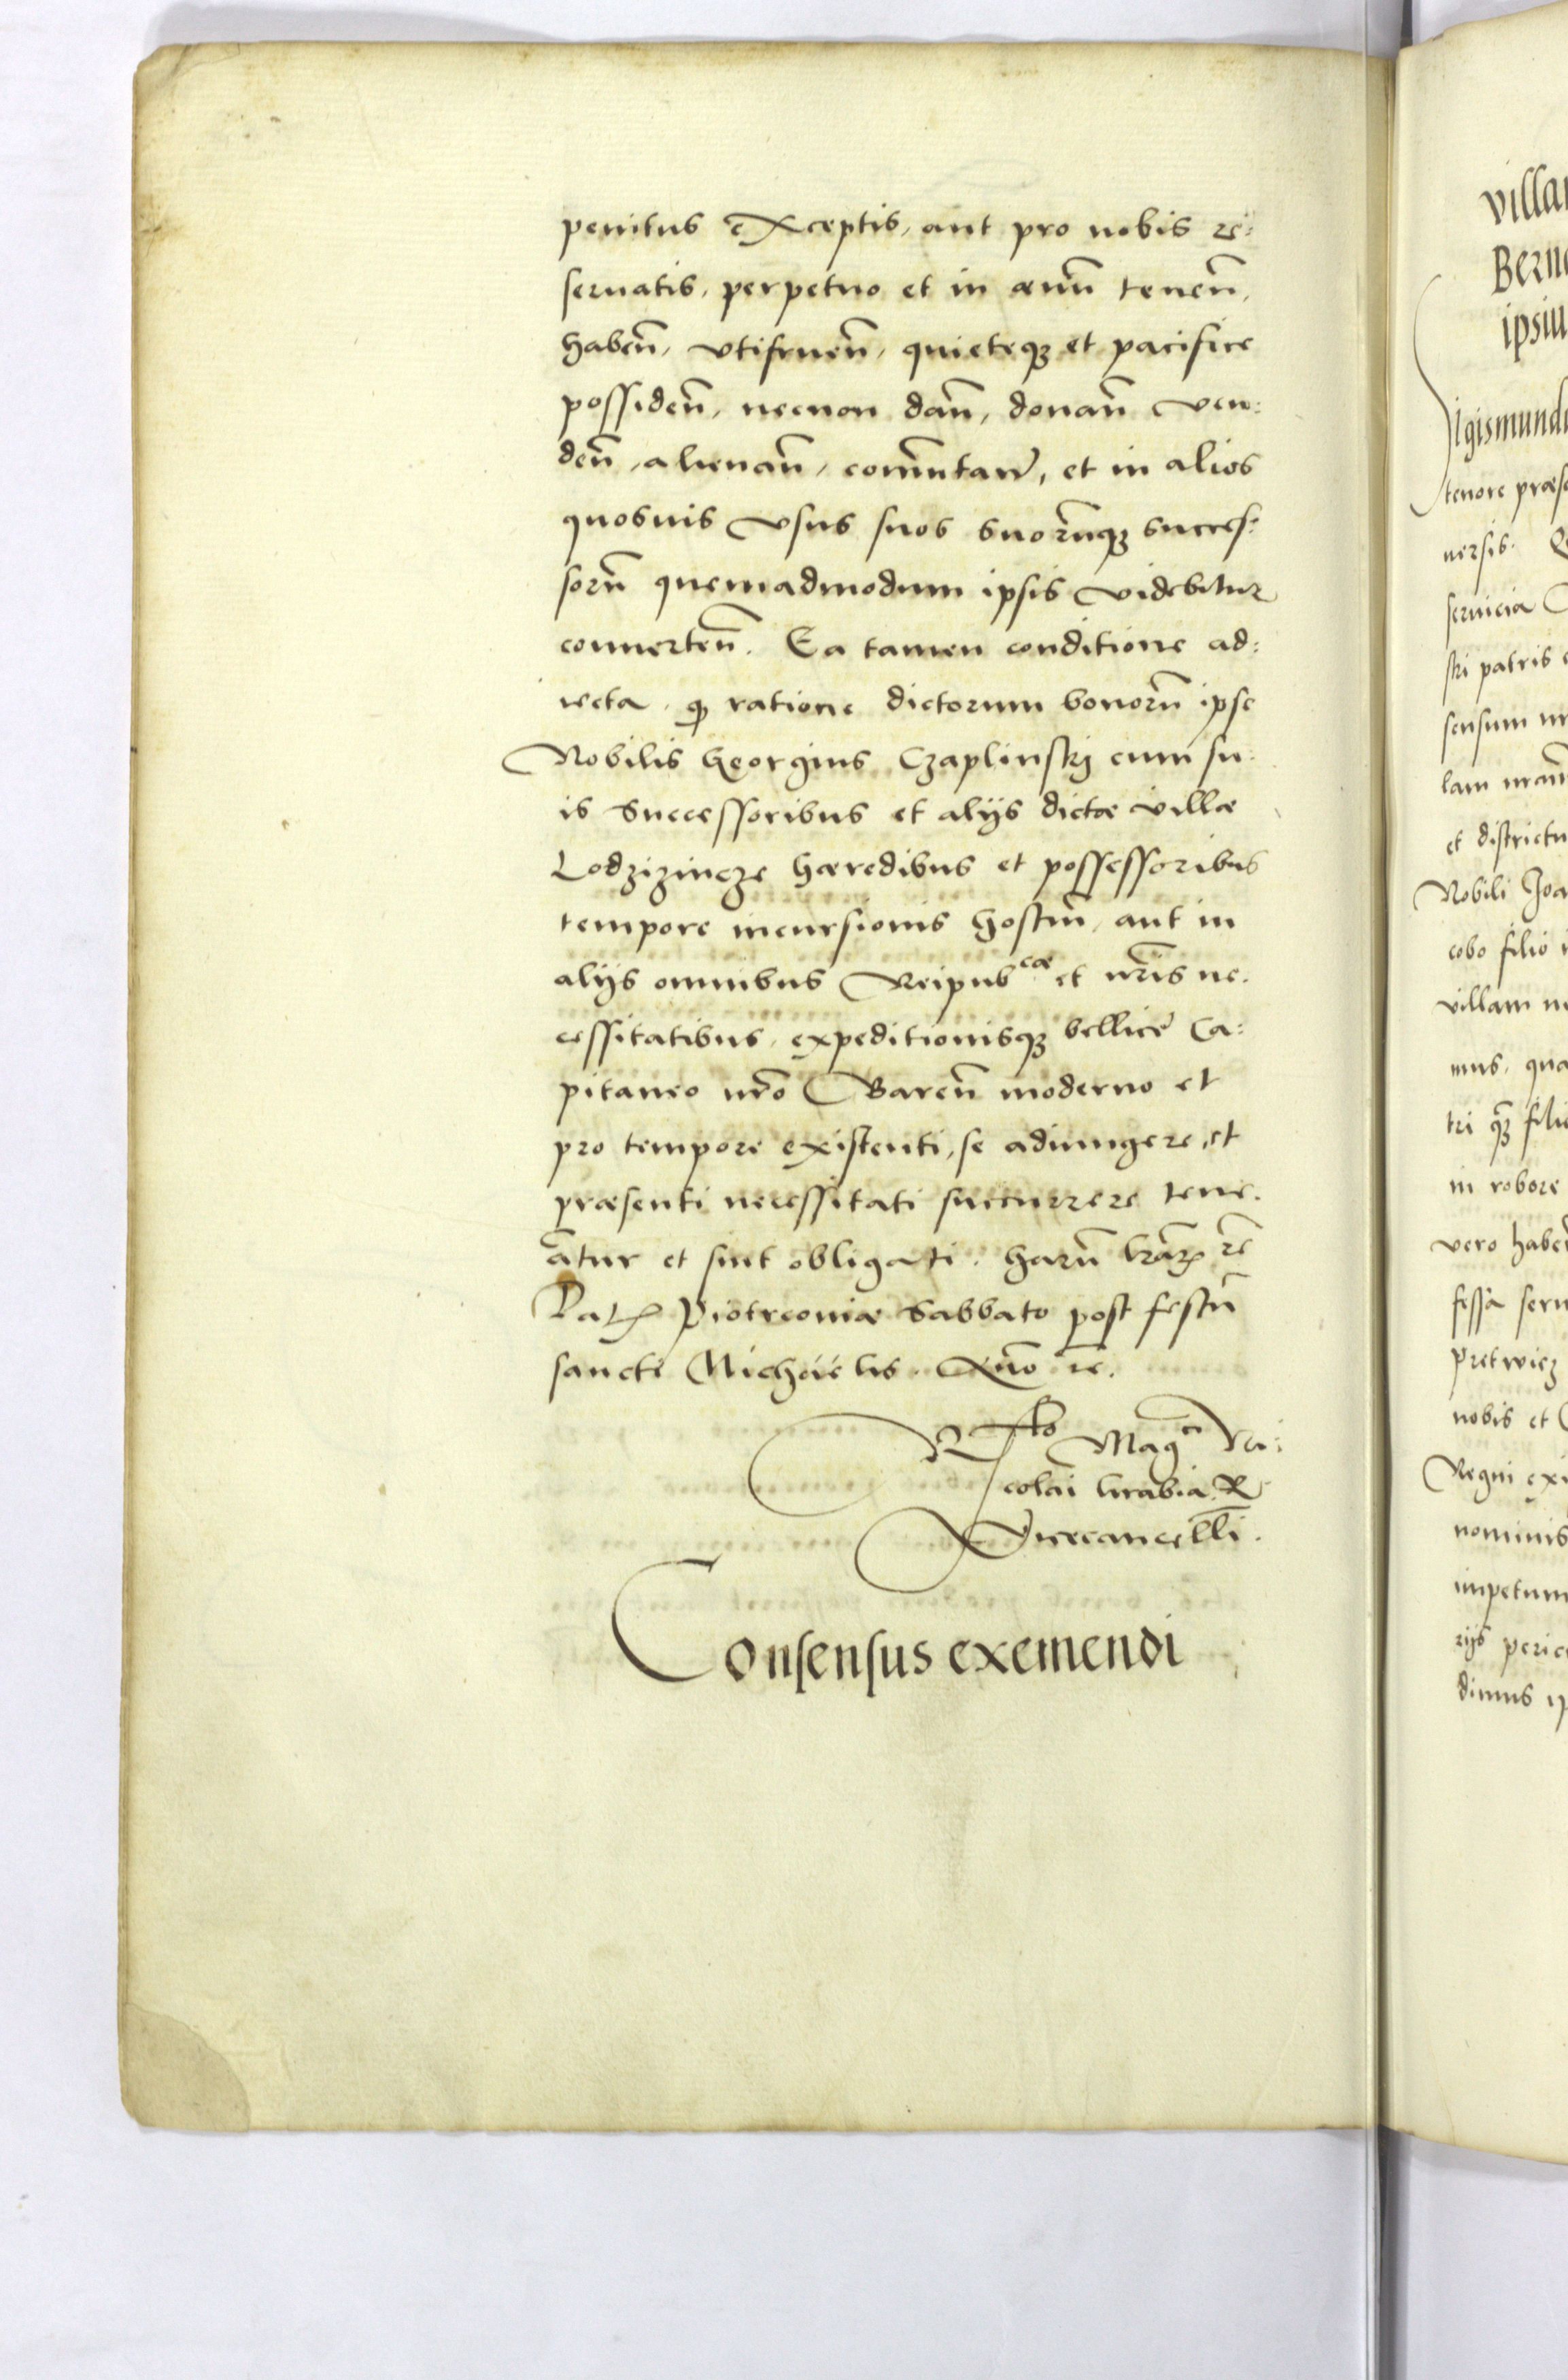 penitus exceptis, aut pro nobis re:
seruatis, perpetuo et in aeuũ tenen̄,
haben̄, vtifruen̄, quieteqꝫ et pacifice
possiden̄, necnon dan̄, donan̄ ven:
den̄, alienan̄, com̄utan̄, et in alios
quosuis vsus suos suorũqꝫ succes:
sorũ quemadmodum ipsis videbitur
conuerten̄. Ea tamen conditione ad:
iecta. qꝫ ratione dictorum bonorũ ipse
Nobilis Georgius Czaplinskj cum su:
is successoribus et alijs dictæ villæ
Lodzizincze hæredibus et possessoribus
tempore incursionis hostiũ, aut in
alijs omnibus Reipubcæ et nr̃is ne:
cessitatibus, expeditionisqꝫ bellicę Ca:
pitaneo nr̃o Baren̄ moderno et
pro tempore existenti, se adiungere, et
præsenti necessitati succurrere tene:
ãtur et sint obligati. harũ lr̃aꝝ rẽ
Datꝝ Piotrcouiæ Sabbato post festũ
sancti Michaëlis. Ann̄o rẽ.
Rlo Magci Ni:
colai hrabia R.
Vicecancelli.
Consensus exemendi
villa
Bern
ipsiu
Sigismund
tenore præs
uersis.
seruicia
stri patris
sensum nr
lam nrãm
et districtu
Nobili Joa
cobo filio
villam n
mus, qua
tri qꝫ filio
in robore
vero haben̄
fessa seru
Pretwicz
nobis et
Regni exi
nominis
impetum
rijs peric
dimus ip